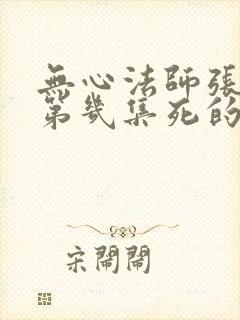 無心法師張
第幾集死的
宋閙閙